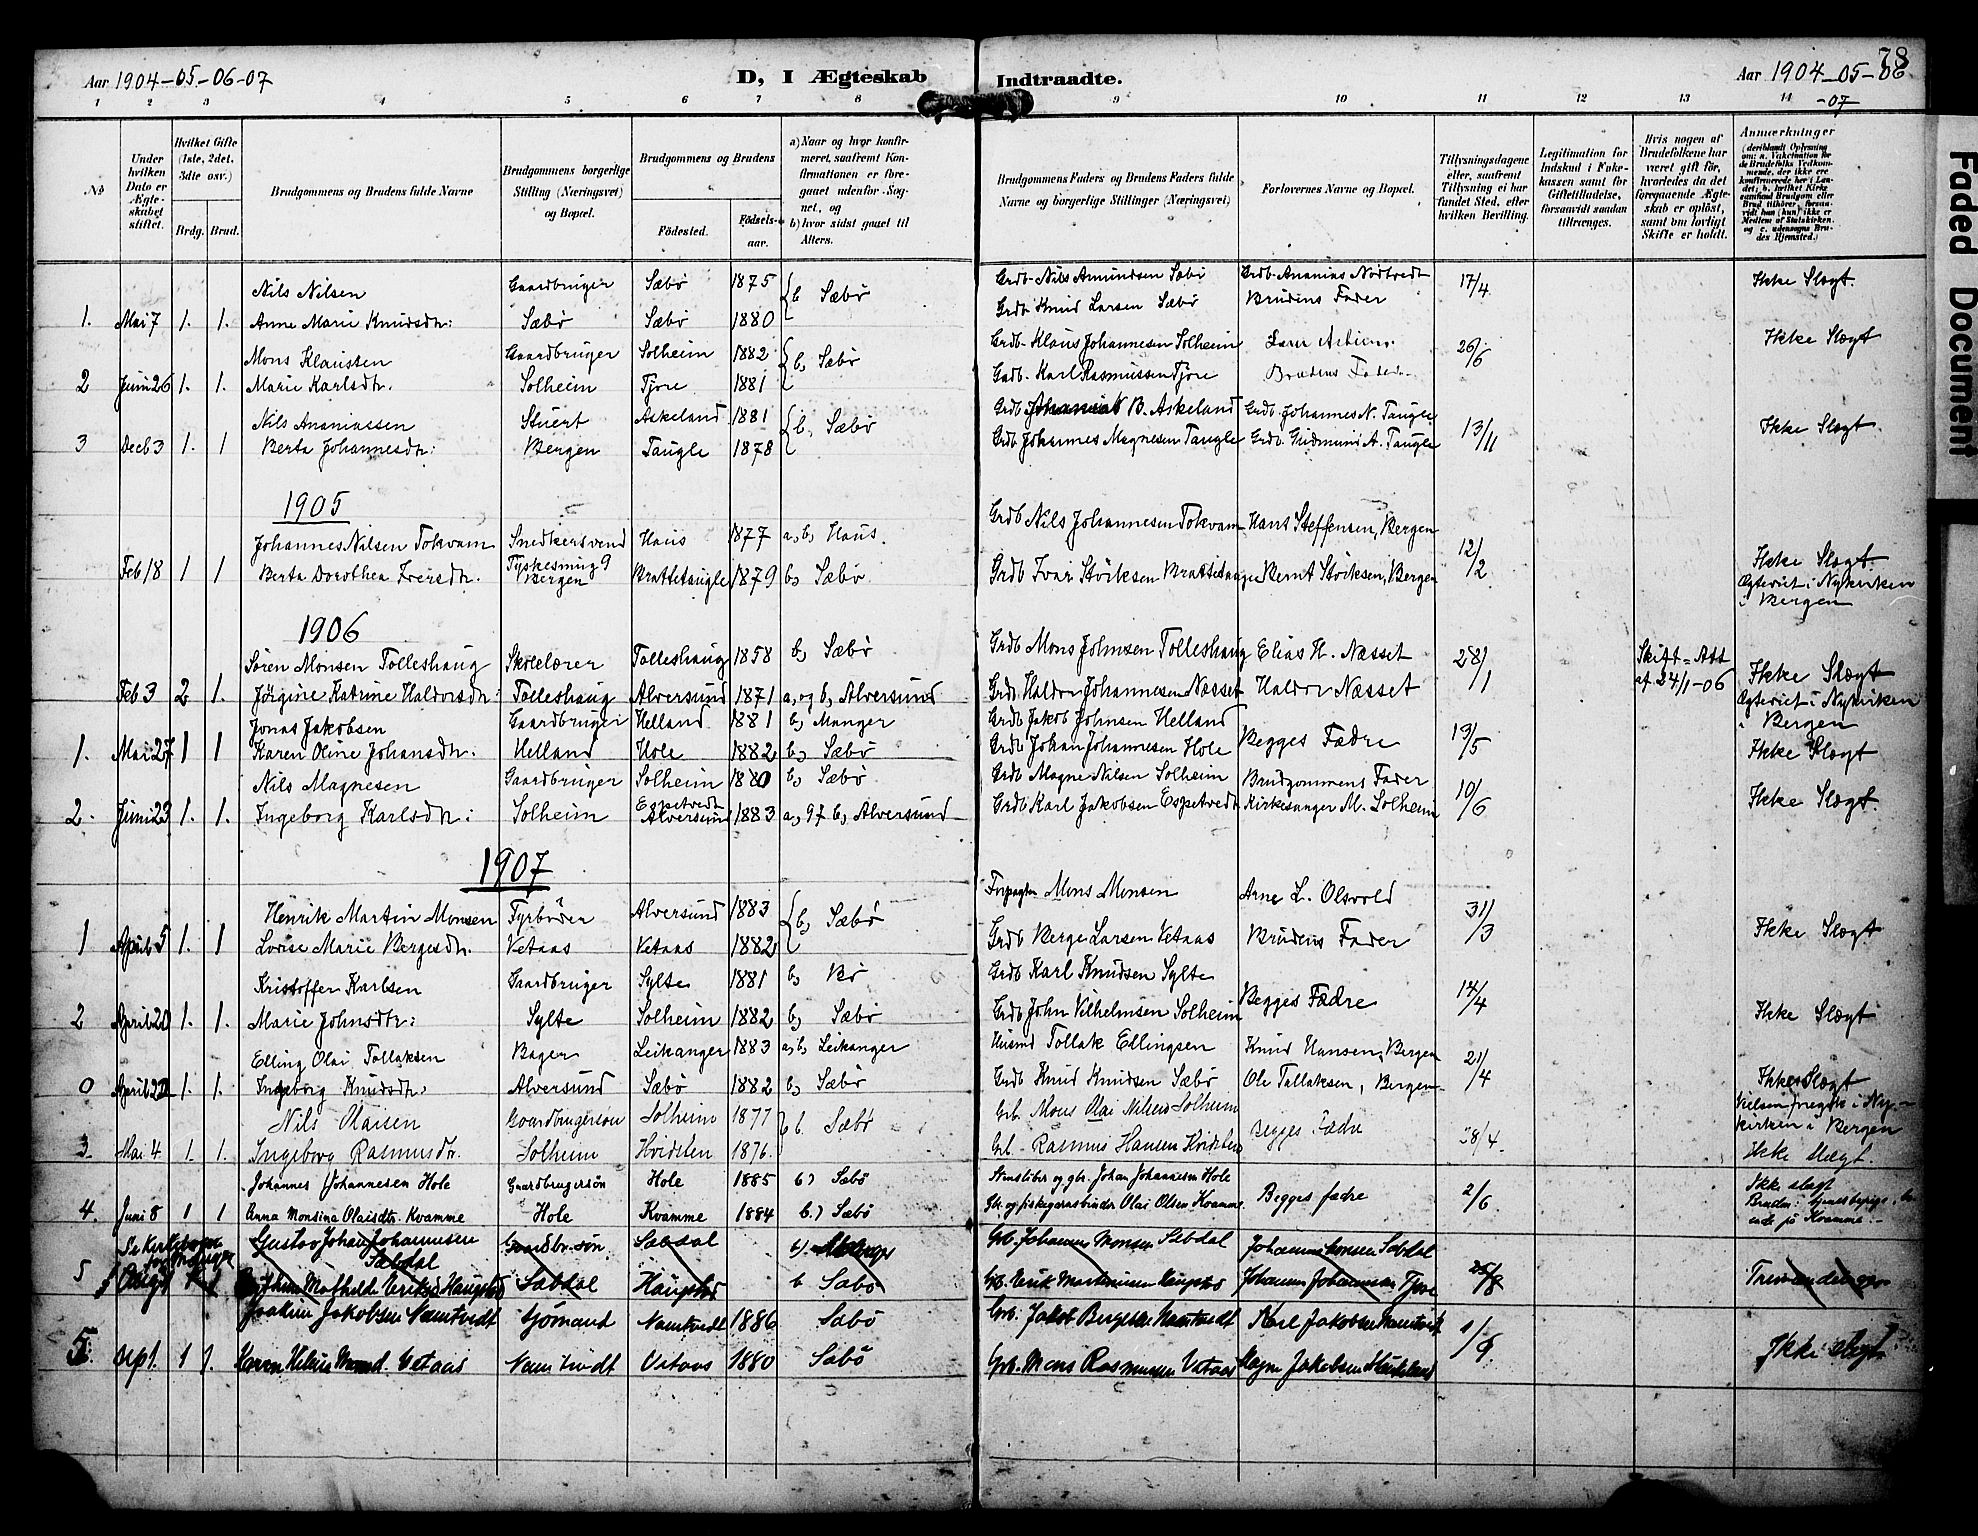 78
Aar 1904-05-06-07
D, I Ægteskab Indtraadte.
Aar 1904-05-06
-07
1 2 3 4 5 6 7 8 9 10 11 12 13 14
No
Under hvilken Dato er Ægteskabet stiftet.
Hvilket Gifte (1ste, 2det, 3dte osv.)
Brdg. Brud.
Brudgommens og Brudens fulde Navne
Brudgommens borgerlige Stilling (Næringsvei) og Bopæl.
Brudgommens og Brudens
Födested.
Födselsaar.
a) Naar og hvor konfirmeret, saafremt Konfirmationen er foregaaet udenfor Sognet, og
b) hvor sidst gaaet til Alters.
Brudgommens Faders og Brudens Faders fulde Navne og borgerlige Stillinger (Næringsvei)
Forlovernes Navne og Bopæl.
Tillysningsdagene eller, saafremt Tillysning ei har fundet Sted, efter hvilken Bevilling.
Legitimation for Indskud i Enkekassen samt for Giftetilladelse, forsaavidt saadan tiltrænges.
Hvis nogen af Brudefolkene har været gift, hvorledes da det foregaaende Ægteskab er oplöst, samt om lovligt Skifte er holdt.
Anmærkninger
Nils Nilsen Gaardbruger Sæbø 1875 b, Sæbø Grdb. Nils Amundsen Sæbø Grdb. Ananias Nødtvedt 17/4 Ikke Slægt.
1. Mai 7 1. 1. Anne Marie Knudsdtr: Sæbø Sæbø 1880 Grdb Knud Larsen Sæbø Brudens Fader
Mons Klaussen Gaardbruger Solheim 1882 b, Sæbø Grdb. Klaus Johannesen Solheim 26/6 Ikke Slægt
2 Juni 26 1. 1. Marie Karlsdtr. Solheim Tjore 1881 Grdb. Karl Rasmussen Tjore Brudens Fader
Nils Ananiassen Stuert Askeland 1881 b, Sæbø Grdb B. Askeland Grdb. Johannes N. Taugle 13/11 Ikke Slægt.
3 Decb 3 1. 1 Berta Johannesdtr: Bergen Taugle 1878 Grdb. Johannes Magnesen Taugle Grdb. Gudmund A. Taugle
1905
Johannes Nilsen Tokvam Snedkersvend Haus 1877 a, b, Haus. Grdb Nils Johannesen Tokvam Hans Steffensen, Bergen 12/2
Feb 18 1 1 Berta Dorothea Iversdtr. Tyskesmug 9 Bergen Brattetaugle 1879 b, Sæbø. Grdb Ivar Störksen Brattetaugle Bernt Störksen, Bergen Ikke Slægt.
Ægteviet i Nykirken
i Bergen
1906
Søren Monsen Tolleshaug Skolelærer Tolleshaug 1858 b, Sæbø Grdb Mons Johnsen Tolleshaug Elias H. Næsset 28/1 Skift-Att
Feb 3 2 1. Jørgine Katrine Haldorsdtr: Tolleshaug Alversund 1871 a, og b, Alversund Grdb. Haldor Johannesen Næsset Haldor Næsset af 24/1-06 Ikke Slægt
Ægteviet i Nykirken
i Bergen
Jonas Jakobsen Gaardbruger Helland 1881 b, Manger Grdb Jakob Johnsen Helland
1. Mai 27 1 1 Karen Oline Johansdtr: Helland Hole 1882 b, Sæbø Grdb Johan Johannesen Hole Begges Fædre 13/5 Ikke Slægt
Nils Magnesen Gaardbruger Solheim 1880 b, Sæbø. Grdb Magne Nilsen Solheim Brudgommens Fader 10/6
2. Juni 23 1. 1. Ingeborg Karlsdtr: Solheim Espetvedt Alversund 1883 a, og b, Alversund Grdb Karl Jakobsen Espetvedt Kirkesanger M. Solheim Ikke Slægt
1907
Henrik Martin Monsen Fyrbøder Alversund 1883 b, Sæbø Forpagter Mons Monsen Arne L. Olsvold 31/3
1 April 5 1. 1 Lovise Marie Bergesdtr. Vetaas Vetaas 1882 Grdb Berge Larsen Vetaas Brudens Fader Ikke Slægt
Kristoffer Karlsen Gaardbruger Sylte 1881 b, Bø Grdb Karl Knudsen Sylte Begges Fædre 14/4
2 April 20 1. 1. Marie Johnsdtr: Sylte Solheim 1882 b, Sæbø Grdb John Vilhelmsen Solheim Ikke Slægt
Elling Olai Tollaksen Bager Leikanger 1883 a, b, Leikanger Husmd Tollak Ellingsen Knud Hansen, Bergen 21/4
0 April 22 1. 1. Ingeborg Knudsdtr: Alversund Sæbø 1882 b, Sæbø Grdb Knud Knudsen Sæbø Ole Tollaksen, Bergen Ikke Slægt
Vielsen foregik i Nykirken i Bergen
Nils Olaisen Gaardbrugersøn Solheim 1877 b. Sæbø Grb. Mons Olai Nilsen Solheim Begges Fædre 28/4.
3. Mai 4 1. 1. Ingeborg Rasmusdtr. Solheim Hvidsten 1876. Grb. Rasmus Hansen Hvidsten Ikke Slægt.
Johannes Johannesen Hole Gaardbrugersøn Hole 1885 b) Sæbø og gbr. Johan Johannesen Hole Begges fædre 2/6 Ikke slægt
4. Juni 8 1 1 Anna Monsina Olaisdtr. Kvamme Hole Kvamme 1884 b.) Sæbø Gbr. og fiskegarnsbinder Olai Olsen Kvamme
Se Kirkebogen for Manger
Gustav Johan Johannesen Sæbdal Gaardbr. søn Sæbdal Grb. Johannes Monsen Sæbdal Johannes Monsen Sæbdal
5 Mathilde Eriksd Haugstad Sæbdal Haugstad b Sæbø Grb. Erik Martinusen Haugstad Johannes Johannesen Tjore 25/8
Joakim Jakobsen Namtvedt Sjømand Namtvedt 1886 Sæbø Grb. Jakob Bergesen Namtvedt Karl Jakobsen Namtvedt 1/9
5. Sept. 1 1. Karen Monsd. Vetaas Namtvedt Vetaas 1880 Sæbø Grb. Mons Rasmussen Vetaas Magne Jakobsen Ikke slægt
Faded Document